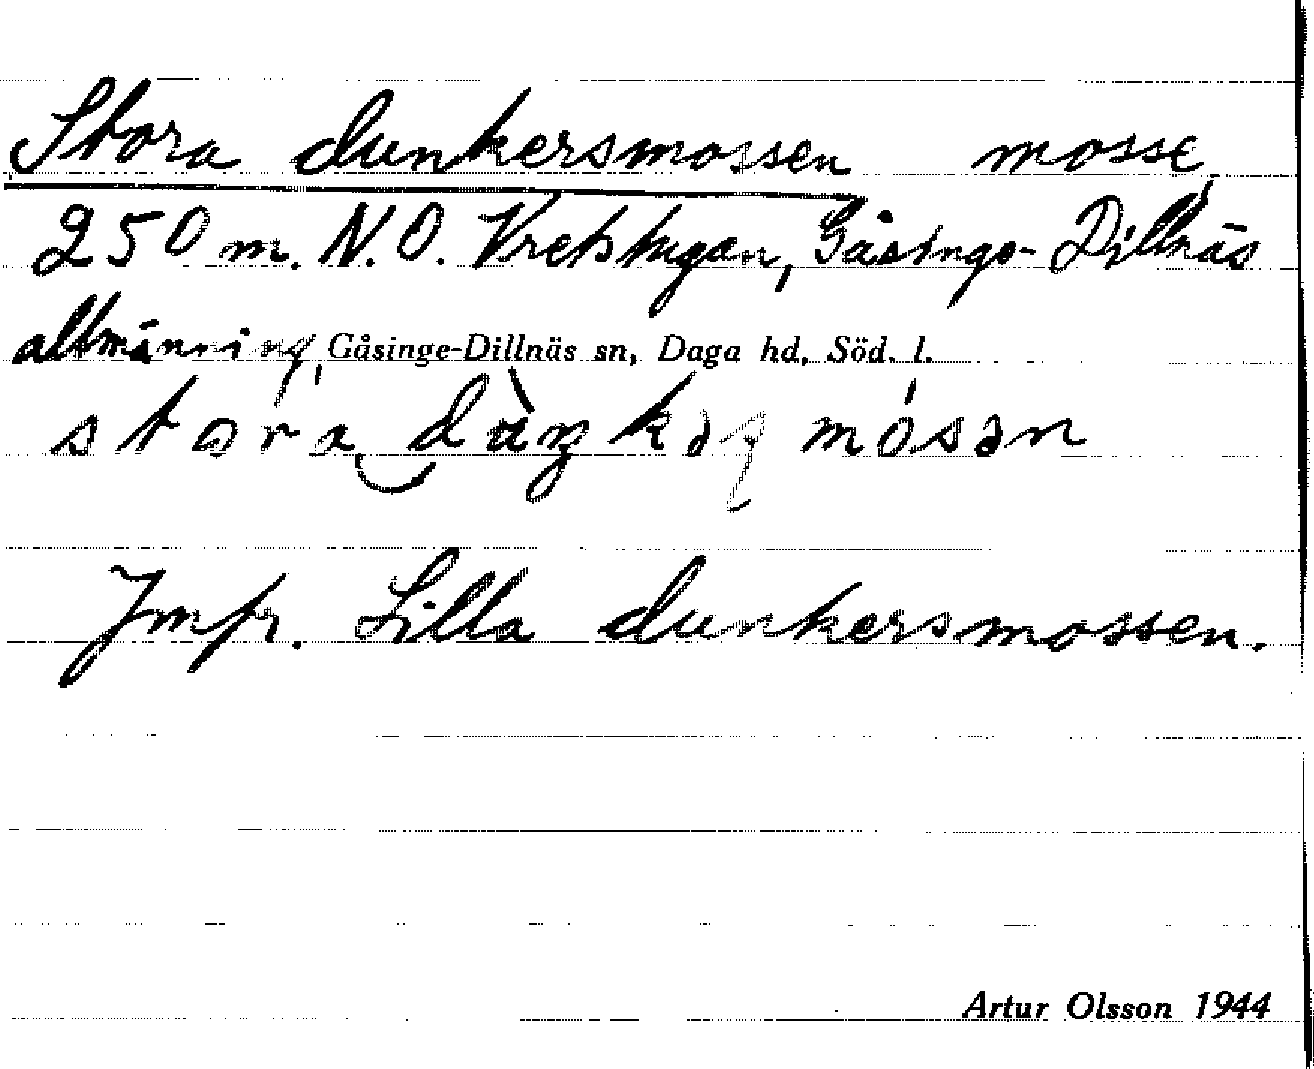 Stora dunkersmossen mosse,
250 m. N.O. Vretstugan, Gåsinge-Dillnäs
allmänning, Gåsinge-Dillnäs sn, Daga hd, Söd. l.
Jmfr. Lilla dunkersmossen.
Artur Olsson 1944